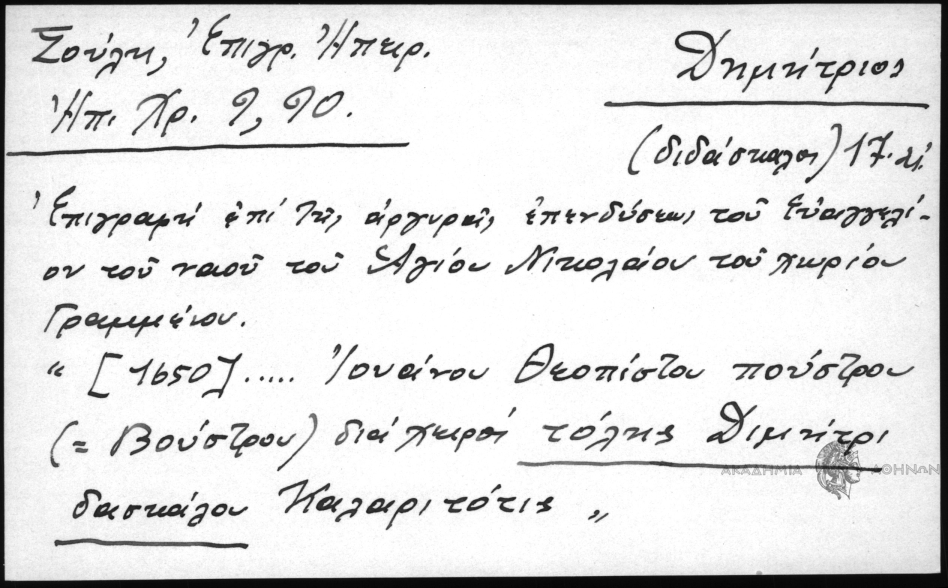 Σούλη, Ἐπιγρ. Ἠπειρ.
Ἠπ. Χρ. 9, 90.
Δημήτριος
(διδάσκαλος) 17. αἰ.
Ἐπιγραφή ἐπί τῆς ἀργυρᾶς ἐπενδύσεως τοῦ Εὐαγγελί-
ου τοῦ ναοῦ τοῦ Ἁγίου Νικολάου τοῦ χωρίου
Γραμμένου.
“ [1650] ..... Ἰουαίνου Θεοπίστου πούστρου
(= Βούστρου) διά χειρός τόλης Διμήτρι
δασκάλου Καλαριτότις „
ΑΚΑΔΗΜΙΑ ΑΘΗΝΩΝ